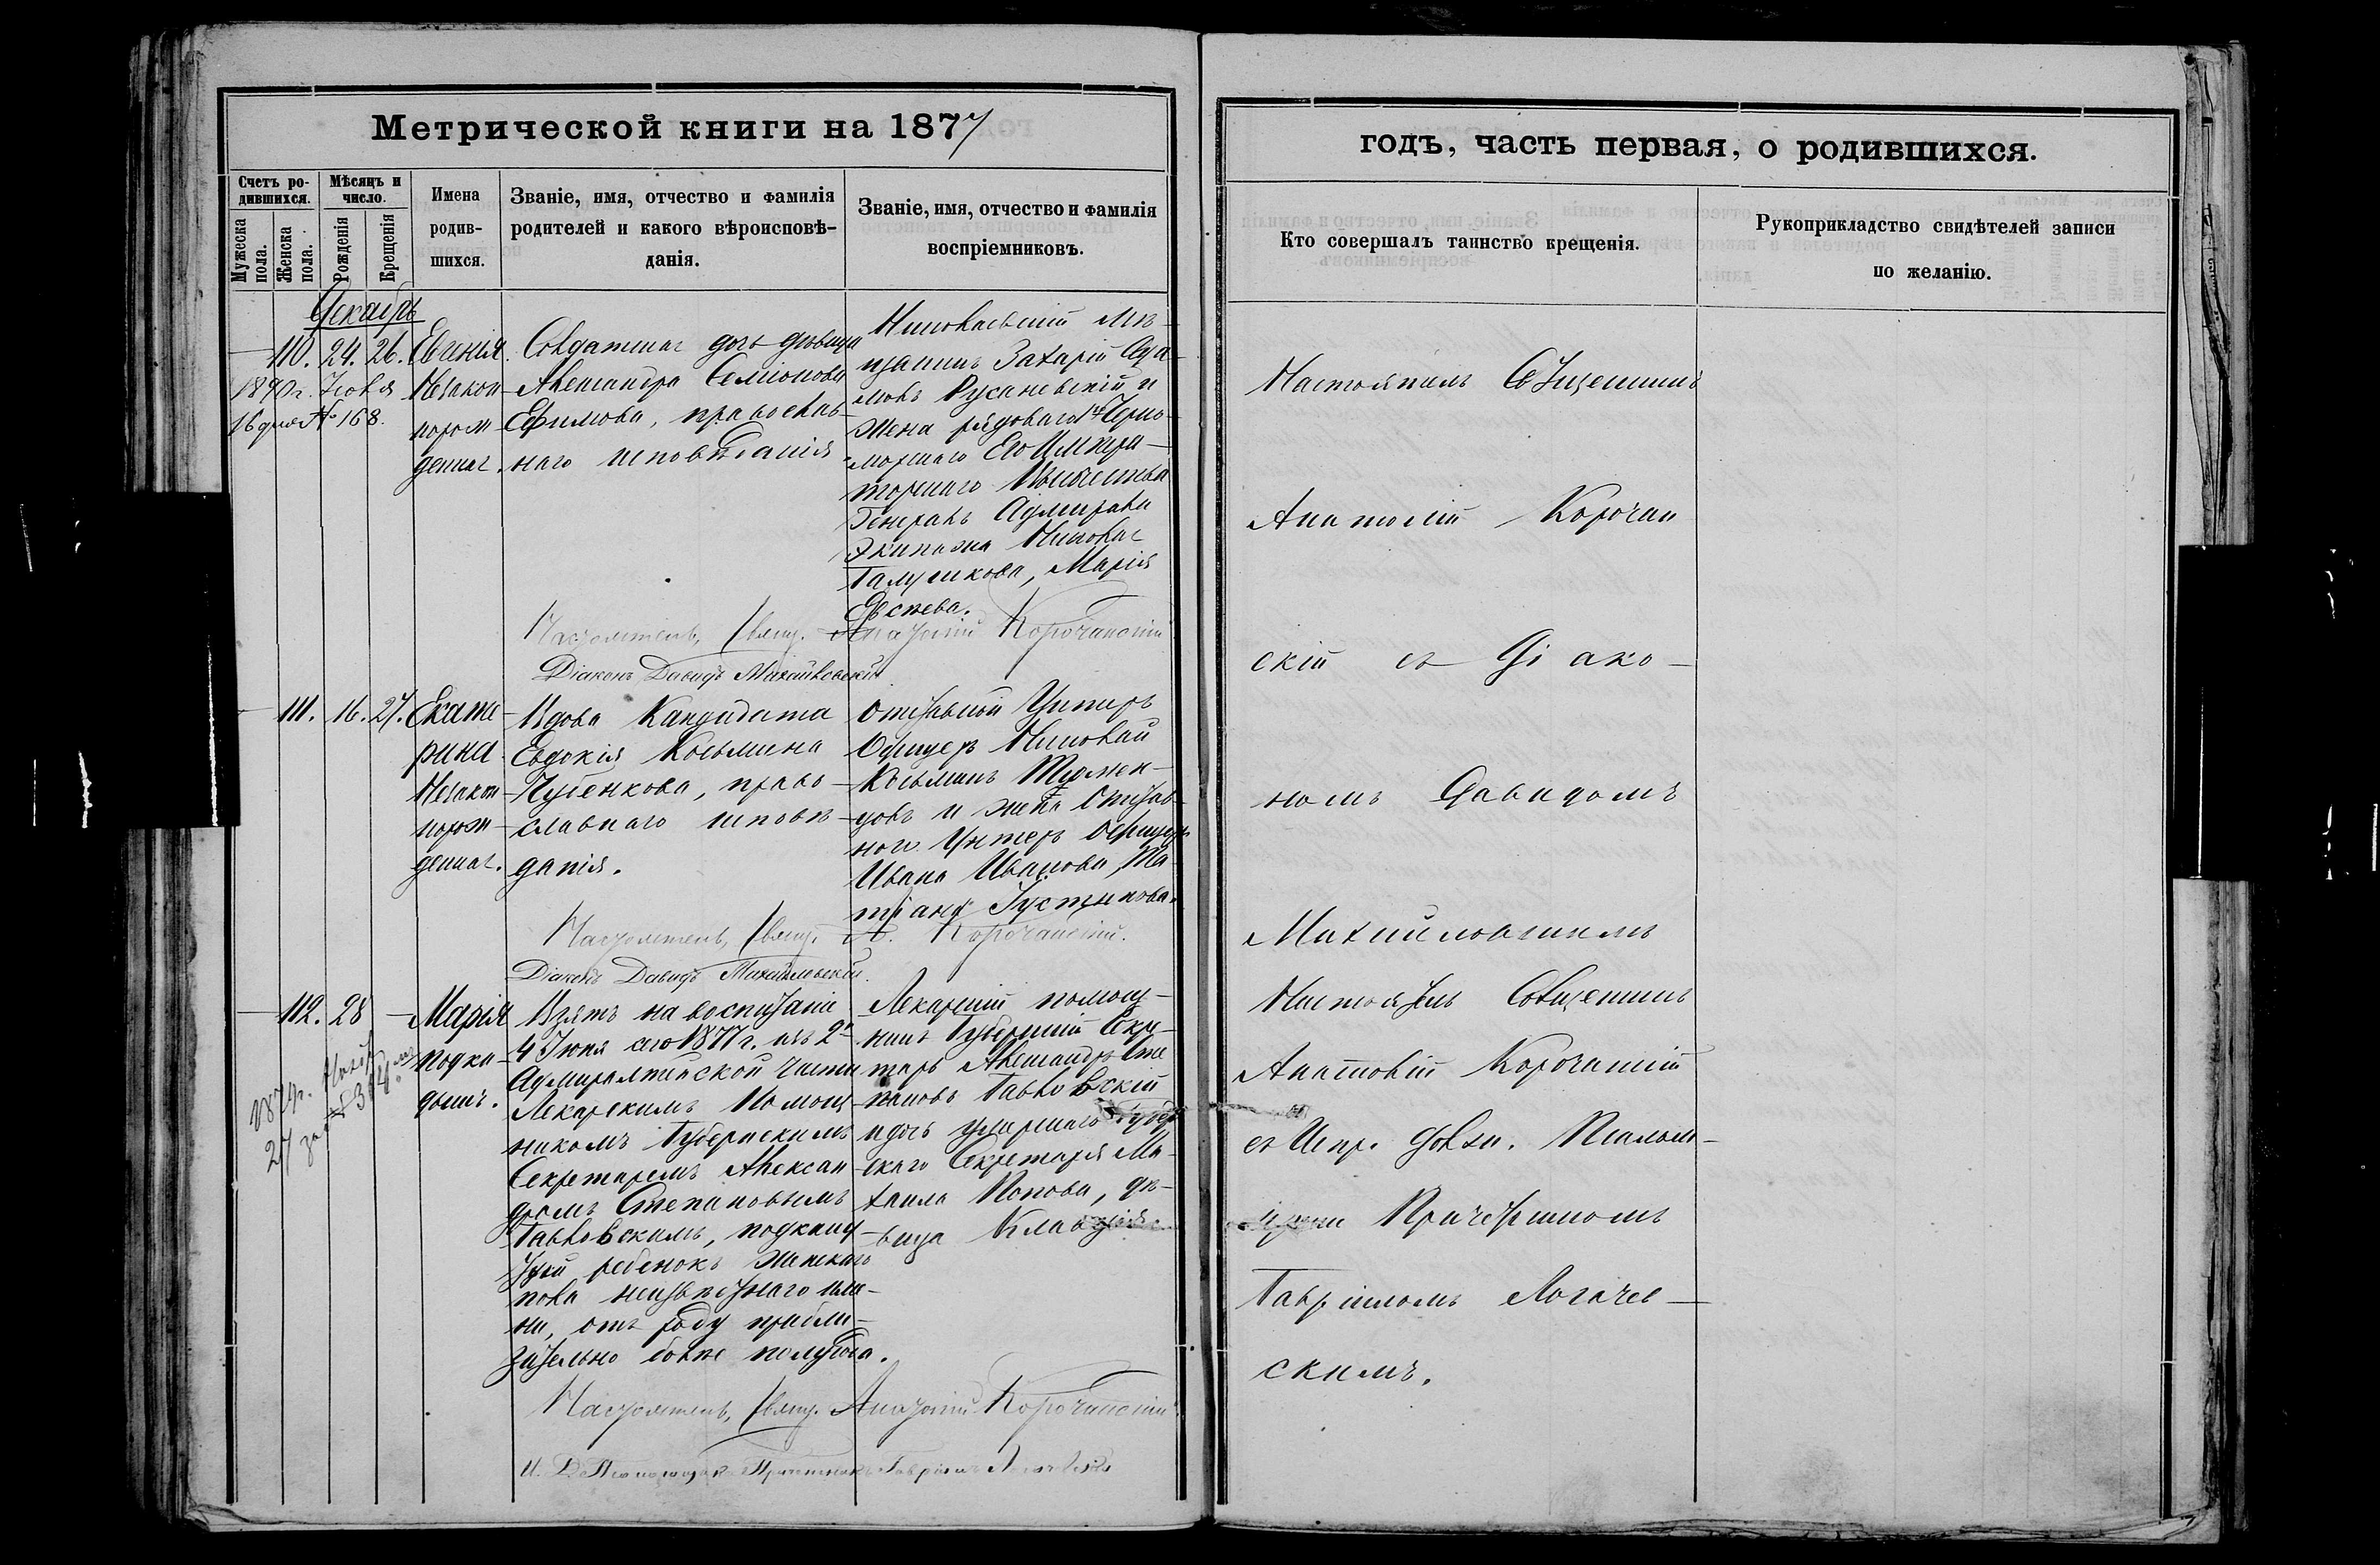 Метрической книги на 1877
годъ, часть первая, о родившихся.
Счетъ ро-
дившихся.
Мужеска
пола.
Женска
пола.
Мѣсяцъ и
число.
Рожденія
Крещенія
Имена
родив-
шихся.
Званіе, имя, отчество и фамилія
родителей и какого вѣроисповѣ-
данія.
Званіе, имя, отчество и фамилія
воспріемниковъ.
Кто совершалъ таинство крещенія.
Рукоприкладство свидѣтелей записи
по желанію.
Декабрь
110. 24. 26.
Евгенія
Незакон-
порож-
деная.
16 дня № 168.
Солдатская дочь дѣвица
Александра Семіонова
Ефимова, православ-
наго исповѣданія
Николаевскій мѣ-
щанинъ Захарій Ада-
мовъ Русановскій и
жена рядоваго Черно-
морскаго Его Импера-
торскаго Высочества
Генералъ Адмирала
Экипажа Николая
Галушкова, Марія
Настоятель, Свящ. Анатолій Корочанскій
Діаконъ Давидъ Михайловскій
Настоятель Священникъ
Анатолій Корочан
скій съ Діако-
номъ Давидомъ
Михайловскимъ
111. 16. 27.
Екате-
рина
Незакон-
порож-
деная.
Вдова Кандидата
Евдокія Косьмина
православнаго исповѣ-
данія.
Отставной Унтеръ
Офицеръ Николай
Косьминъ
и жена Отстав-
ного Унтеръ Офицера
Ивана Иванова, Та-
тіана Густинова.
Настоятель, Свящ. А. Корочанскій.
Діаконъ Давидъ Михайловскій.
112. 28
Марія
подки-
дышъ.
Взятъ на воспитаніе
4 Іюня сего 1877 г. изъ 2й
Адмиралтейской части
Лекарскимъ Помощ-
никомъ Губернскимъ
Секретаремъ Алексан-
дромъ Степановымъ
Павловскимъ, подкину-
тый ребенокъ женскаго
пола неизвѣстнаго име-
ни, отъ роду прибли-
зительно болѣе полугода.
Лекарскій помощ-
никъ Губернскій Секре-
тарь Александръ Сте
пановъ Павловскій
и дочь умершаго Губерн
скаго Секретаря Ми-
хаила Попова, дѣ-
вица Клавдія
Настоятель Священникъ
Анатолій Корочанскій
съ Испр. Должн. Псалом-
щика Причетникомъ
Гавріиломъ Логачев-
скимъ.
Настоятель, Свящ. Анатолій Корочанскій
И. Д. Псаломщика Причетникъ Гавріилъ Логачевскій